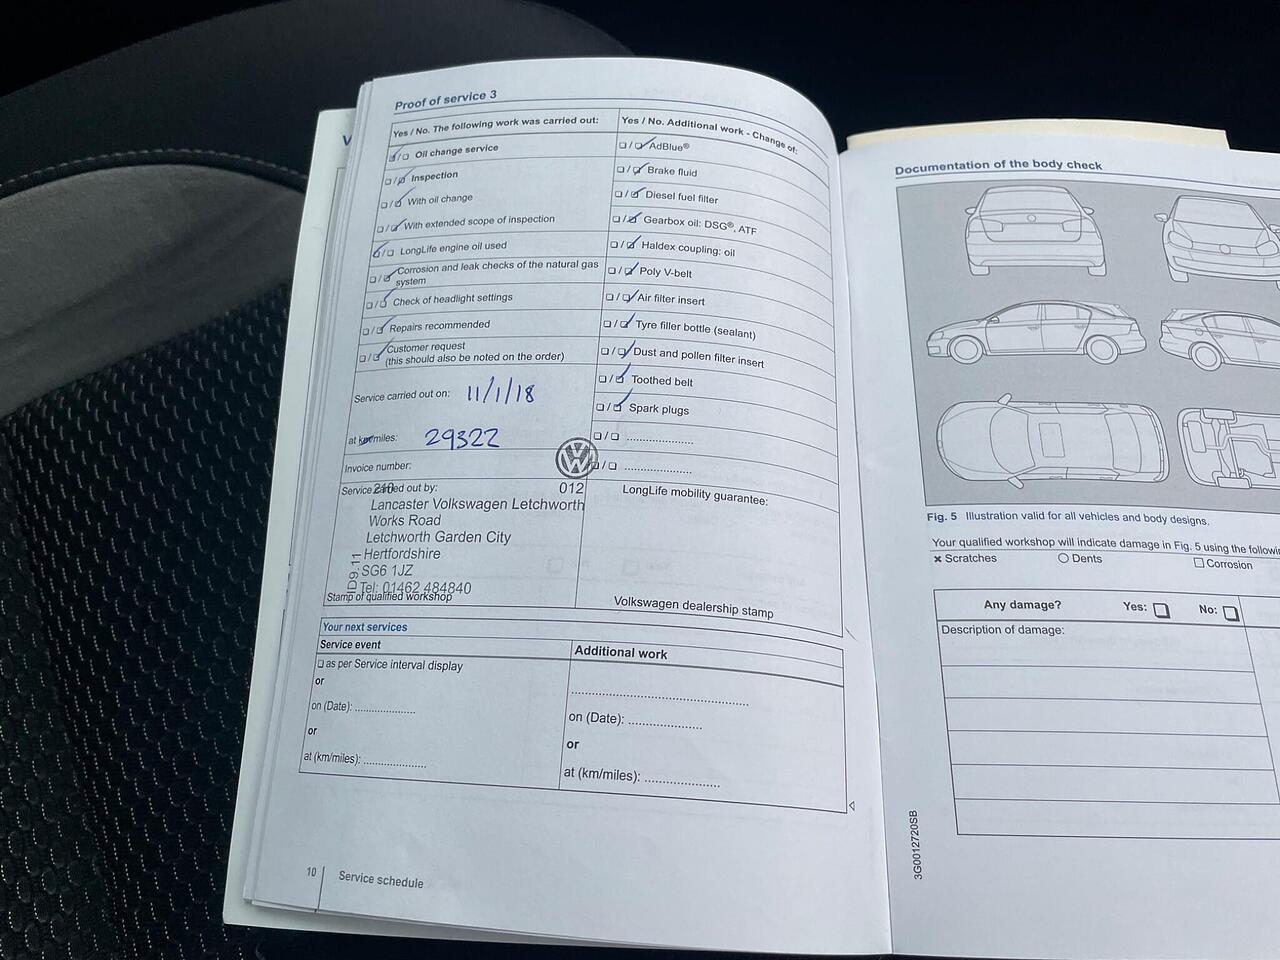 Proof of service 3
Yes / No. The following work was carried out:
Oil change service
Inspection
With oil change
With extended scope of inspection
LongLife engine oil used
Corrosion and leak checks of the natural gas
system
Check of headlight settings
Repairs recommended
Customer request
(this should also be noted on the order)
Service carried out on: 11/1/18
at km/miles: 29322
Invoice number:
Service carried out by:
210 012
Lancaster Volkswagen Letchworth
Works Road
Letchworth Garden City
Hertfordshire
SG6 1JZ
Tel: 01462 484840
ID9.11
Stamp of qualified workshop
Yes / No. Additional work - Change of:
AdBlue®
Brake fluid
Diesel fuel filter
Gearbox oil: DSG®, ATF
Haldex coupling: oil
Poly V-belt
Air filter insert
Tyre filler bottle (sealant)
Dust and pollen filter insert
Toothed belt
Spark plugs
VW
LongLife mobility guarantee:
Volkswagen dealership stamp
Your next services
Service event
as per Service interval display
or
on (Date): ....................
or
at (km/miles): .....................
Additional work
on (Date): .....................
or
at (km/miles): .....................
10 Service schedule
Documentation of the body check
Fig. 5 Illustration valid for all vehicles and body designs.
Your qualified workshop will indicate damage in Fig. 5 using the
Scratches Dents Corrosion
Any damage? Yes: No:
Description of damage:
3G0012720SB